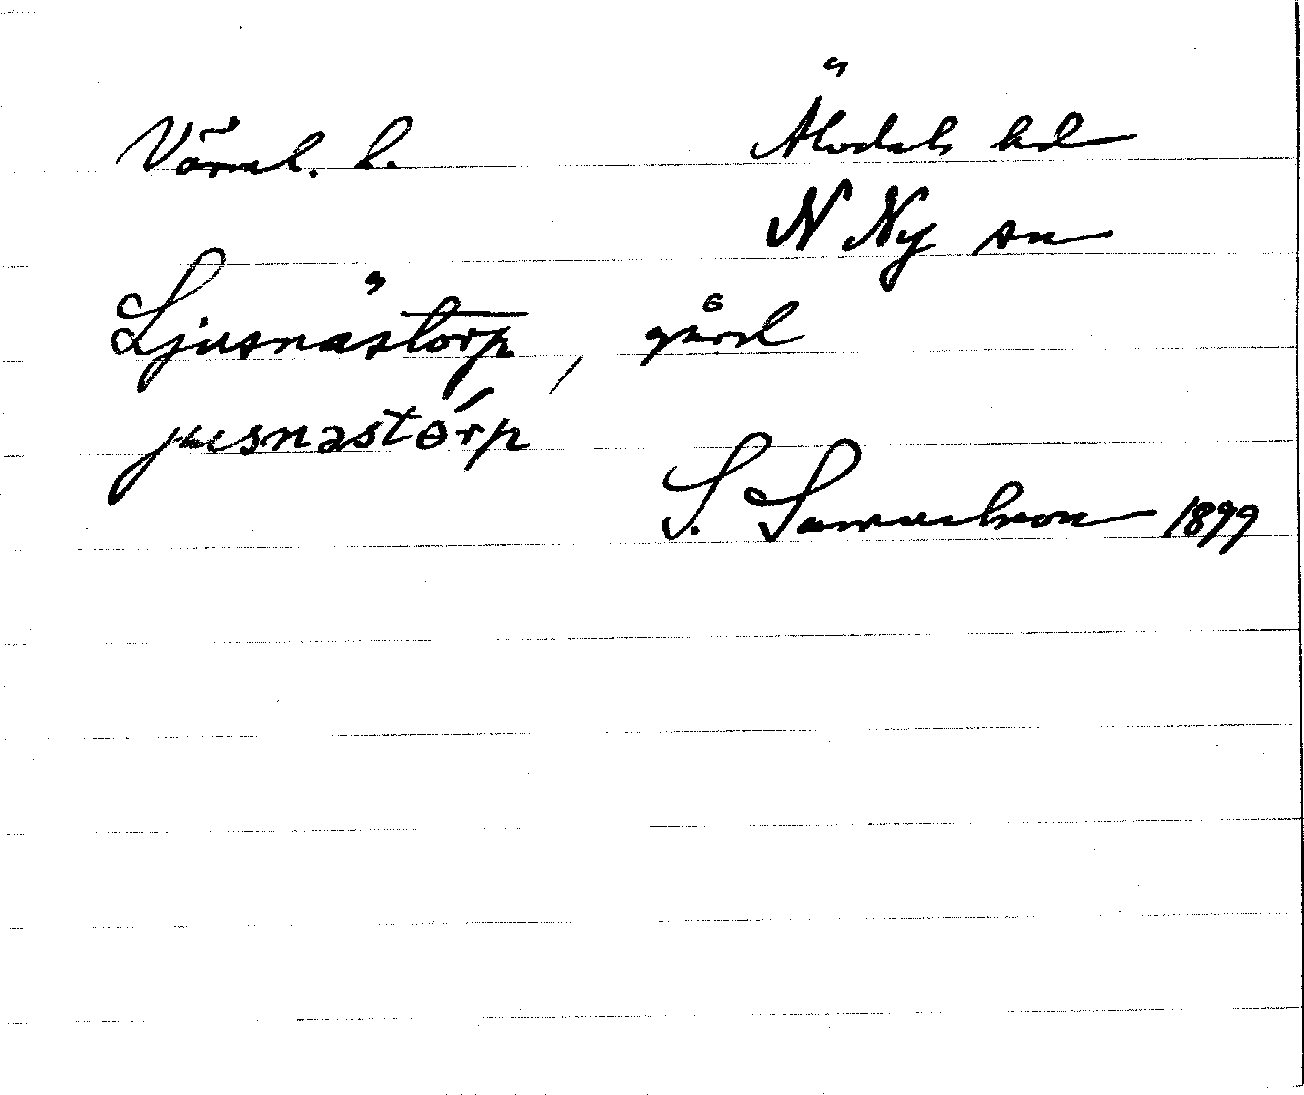 Värml. l. Älvdals hd
N Ny sn
Ljusnästorp, gård
jusnastórp
S. Samuelsson 1899